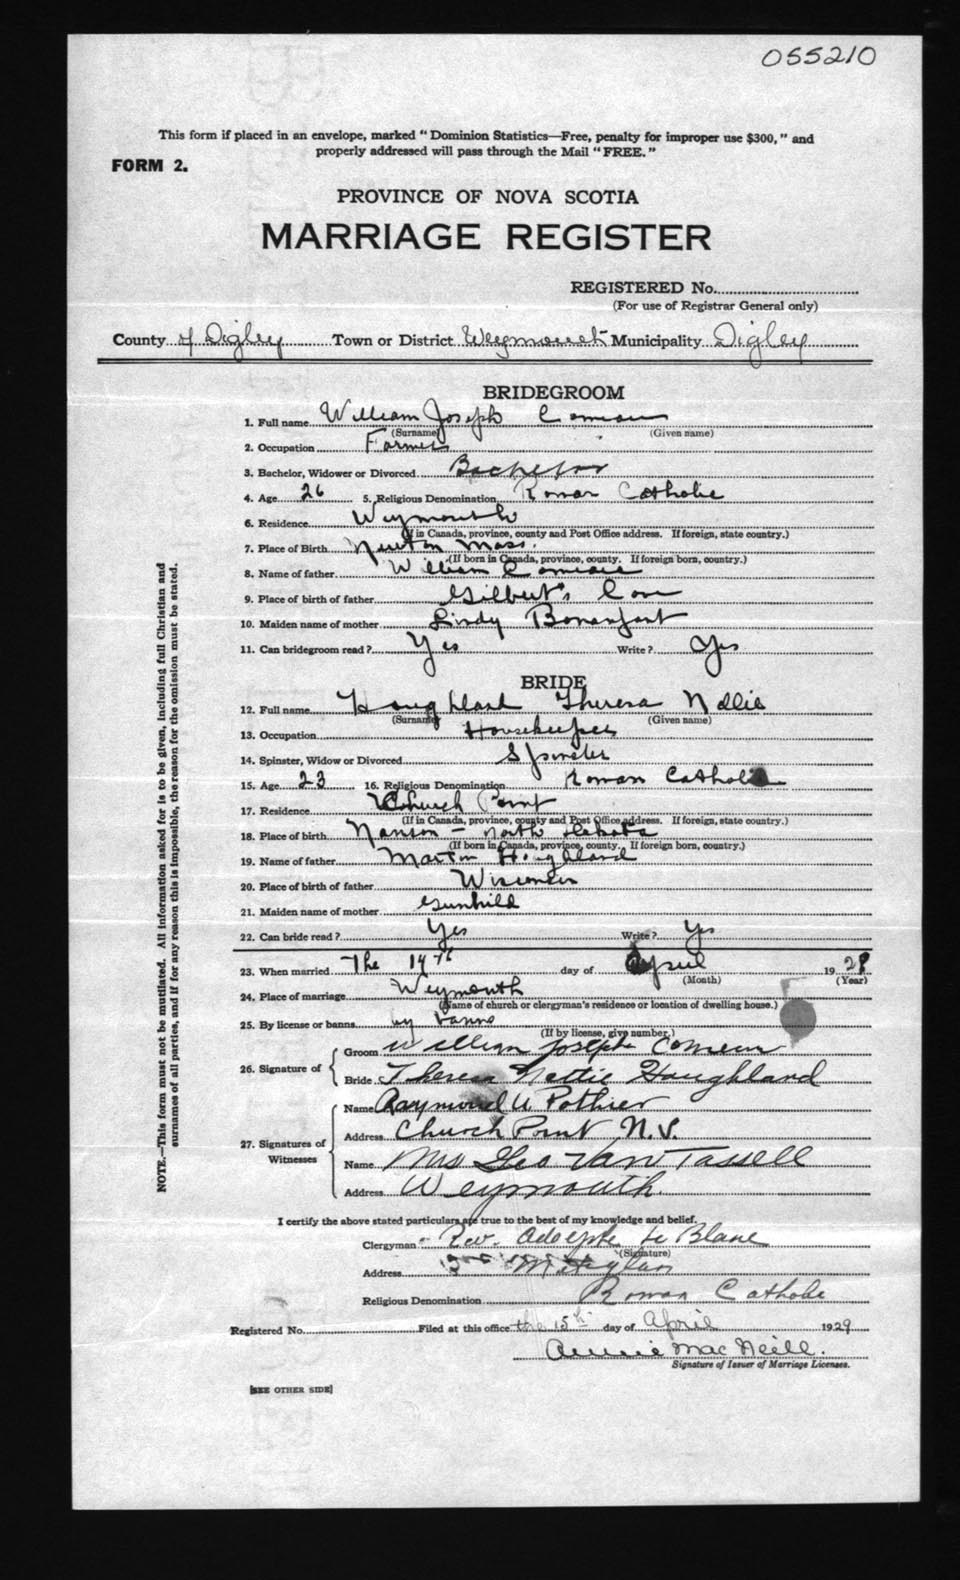 055210
This form if placed in an envelope, marked "Dominion Statistics—Free, penalty for improper use $300," and
properly addressed will pass through the Mail "FREE."
FORM 2.
PROVINCE OF NOVA SCOTIA
MARRIAGE REGISTER
REGISTERED No.
(For use of Registrar General only)
County of Digby Town or District Weymouth Municipality Digby
BRIDEGROOM
1. Full name William Joseph Comeau
(Surname) (Given name)
2. Occupation Farmer
3. Bachelor, Widower or Divorced Bachelor
4. Age 26 5. Religious Denomination Roman Catholic
6. Residence Weymouth
(If in Canada, province, county and Post Office address. If foreign, state country.)
7. Place of Birth Newton Mass.
(If born in Canada, province, county. If foreign born, country.)
8. Name of father William Comeau
9. Place of birth of father Gilbert's Cove
10. Maiden name of mother Lindy Bonenfant
11. Can bridegroom read? Yes Write? Yes
BRIDE
12. Full name Houghland Theresa Nellie
(Surname) (Given name)
13. Occupation Housekeeper
14. Spinster, Widow or Divorced Spinster
15. Age 23 16. Religious Denomination Roman Catholic
17. Residence Church Point
(If in Canada, province, county and Post Office address. If foreign, state country.)
18. Place of birth Nanson - North Dakota
(If born in Canada, province, county. If foreign born, country.)
19. Name of father Martin Houghland
20. Place of birth of father Wisconsin
21. Maiden name of mother Gunhild
22. Can bride read? Yes Write? Yes
23. When married The 14th day of April 1929
(Month) (Year)
24. Place of marriage Weymouth
(Name of church or clergyman's residence or location of dwelling house.)
25. By license or banns by banns
(If by license, give number.)
26. Signature of
Groom William Joseph Comeau
Bride Theresa Nettie Houghland
27. Signatures of Witnesses
Name Raymond U Pothier
Address Church Point N.S.
Name Mrs Geo VanTassell
Address Weymouth.
I certify the above stated particulars are true to the best of my knowledge and belief.
Clergyman Rev. Adolphe Le Blanc
(Signature)
Address
Religious Denomination Roman Catholic
Registered No. Filed at this office the 15th day of April 1929
Annie MacNeill.
Signature of Issuer of Marriage Licenses.
[SEE OTHER SIDE]
NOTE.—This form must not be mutilated. All information asked for is to be given, including full Christian and
surnames of all parties, and if for any reason this is impossible, the reason for the omission must be stated.